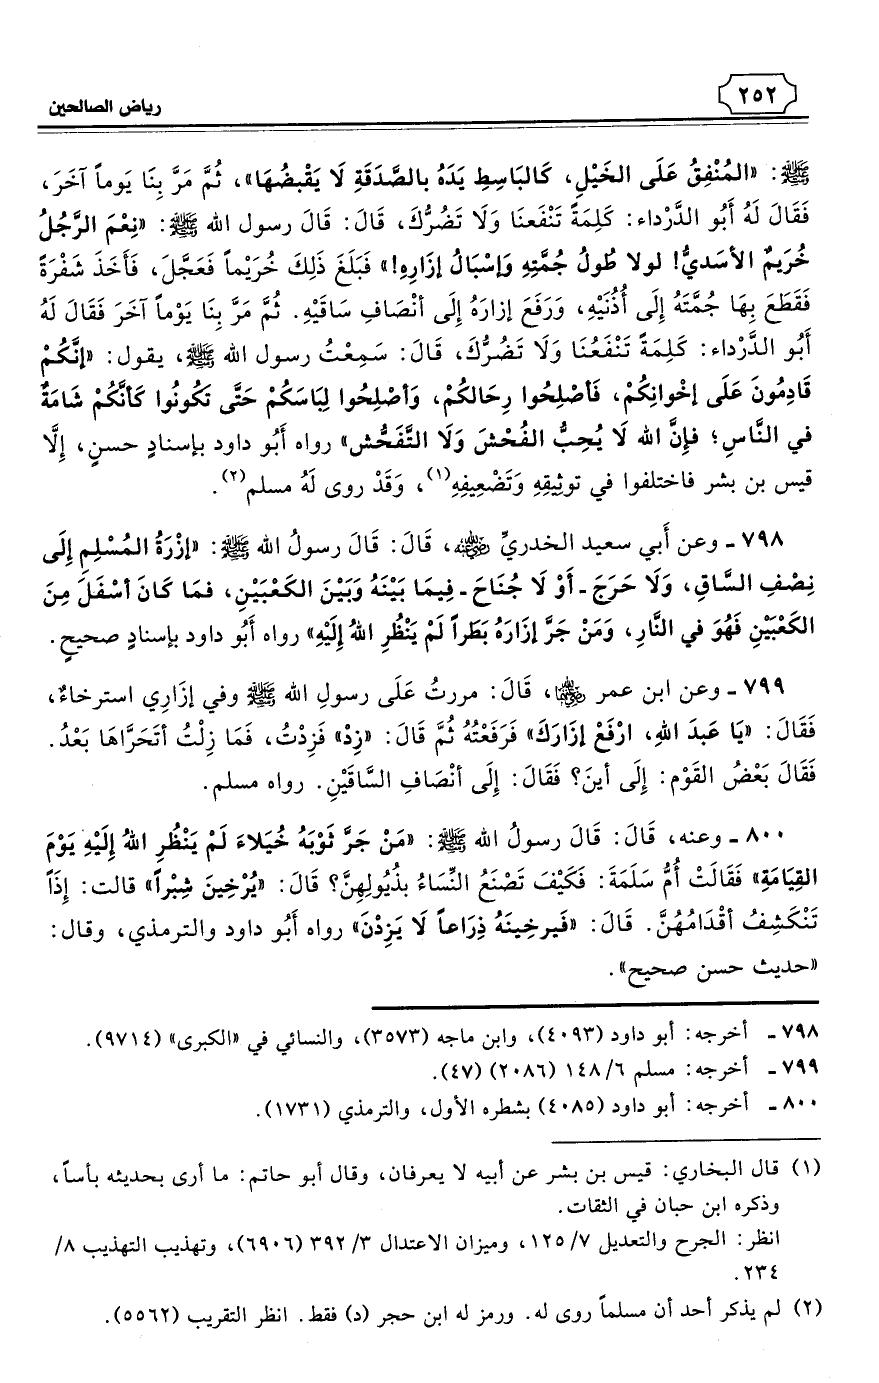 ٢٥٢
رياض الصالحين
ﷺ: «المُنْفِقُ عَلَى الخَيْلِ، كَالبَاسِطِ يَدَهُ بالصَّدَقَةِ لَا يَقْبضُهَا»، ثُمَّ مَرَّ بِنَا يَوماً آخَرَ،
فَقَالَ لَهُ أَبُو الدَّرْداء: كَلِمَةً تَنْفَعنَا وَلَا تَضُرُّكَ، قَالَ: قَالَ رسول الله ﷺ: «نِعْمَ الرَّجُلُ
خُرَيمٌ الأسَديُّ! لولا طُولُ جُمَّتِهِ وَإسْبَالُ إزَارِهِ!» فَبَلَغَ ذَلِكَ خُرَيْماً فَعَجَّلَ، فَأَخَذَ شَفْرَةً
فَقَطَعَ بِهَا جُمَّتَهُ إلَى أُذُنَيْهِ، وَرَفَعَ إزارَهُ إلَى أنْصَافِ سَاقَيْهِ. ثُمَّ مَرَّ بِنَا يَوْماً آخَرَ فَقَالَ لَهُ
أَبُو الدَّرْداء: كَلِمَةً تَنْفَعُنَا وَلَا تَضُرُّكَ، قَالَ: سَمِعْتُ رسول الله ﷺ، يقول: «إنَّكُمْ
قَادِمُونَ عَلَى إخْوانِكُمْ، فَأصْلِحُوا رِحَالكُمْ، وَأصْلِحُوا لِبَاسَكُمْ حَتَّى تَكُونُوا كَأنَّكُمْ شَامَةٌ
في النَّاسِ؛ فإِنَّ الله لَا يُحِبُّ الفُحْشَ وَلَا التَّفَحُّش» رواه أَبُو داود بإسنادٍ حسنٍ، إلَّا
قيس بن بشر فاختلفوا في توثِيقِهِ وَتَضْعِيفِهِ(١)، وَقَدْ روى لَهُ مسلم(٢).
٧٩٨ ـ وعن أَبي سعيد الخدريِّ رضي الله عنه، قَالَ: قَالَ رسولُ الله ﷺ: «إزْرَةُ المُسْلِمِ إلَى
نِصْفِ السَّاقِ، وَلَا حَرَجَ ـ أَوْ لَا جُنَاحَ ـ فِيمَا بَيْنَهُ وَبَيْنَ الكَعْبَيْنِ، فمَا كَانَ أسْفَلَ مِنَ
الكَعْبَيْنِ فَهُوَ في النَّارِ، وَمَنْ جَرَّ إزَارَهُ بَطَراً لَمْ يَنْظُرِ اللهُ إلَيْهِ» رواه أَبُو داود بإسنادٍ صحيحٍ.
٧٩٩ ـ وعن ابن عمر رضي الله عنهما، قَالَ: مررتُ عَلَى رسولِ الله ﷺ وفي إزَارِي استرخاءٌ،
فَقَالَ: «يَا عَبدَ اللهِ، ارْفَعْ إزَارَكَ» فَرَفَعْتُهُ ثُمَّ قَالَ: «زِدْ» فَزِدْتُ، فَمَا زِلْتُ أتَحَرَّاهَا بَعْدُ.
فَقَالَ بَعْضُ القَوْم: إلَى أينَ؟ فَقَالَ: إلَى أنْصَافِ السَّاقَيْنِ. رواه مسلم.
٨٠٠ ـ وعنه، قَالَ: قَالَ رسولُ الله ﷺ: «مَنْ جَرَّ ثَوْبَهُ خُيَلاءَ لَمْ يَنْظُرِ اللهُ إلَيْهِ يَوْمَ
القِيَامَةِ» فَقَالَتْ أُمُّ سَلَمَةَ: فَكَيْفَ تَصْنَعُ النِّسَاءُ بذُيُولِهِنَّ؟ قَالَ: «يُرْخِينَ شِبْراً» قالت: إِذَاً
تَنْكَشِفُ أقْدَامُهُنَّ. قَالَ: «فَيرخِينَهُ ذِرَاعاً لَا يَزِدْنَ» رواه أَبُو داود والترمذي، وقال:
«حديث حسن صحيح».
٧٩٨ ـ أخرجه: أبو داود (٤٠٩٣)، وابن ماجه (٣٥٧٣)، والنسائي في «الكبرى» (٩٧١٤).
٧٩٩ ـ أخرجه: مسلم ٦/ ١٤٨ (٢٠٨٦) (٤٧).
٨٠٠ ـ أخرجه: أبو داود (٤٠٨٥) بشطره الأول، والترمذي (١٧٣١).
(١) قال البخاري: قيس بن بشر عن أبيه لا يعرفان، وقال أبو حاتم: ما أرى بحديثه بأساً،
وذكره ابن حبان في الثقات.
انظر: الجرح والتعديل ٧/ ١٢٥، وميزان الاعتدال ٣/ ٣٩٢ (٦٩٠٦)، وتهذيب التهذيب ٨/
٢٣٤.
(٢) لم يذكر أحد أن مسلماً روى له. ورمز له ابن حجر (د) فقط. انظر التقريب (٥٥٦٢).